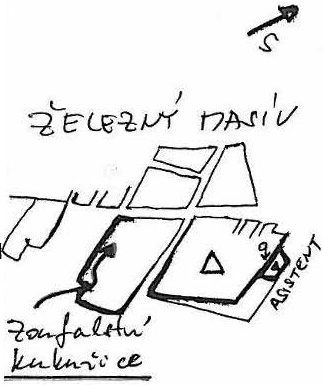 S
ŽELEZNÝ MASÍV
ASISTENT
Zoufalství
kukuřice